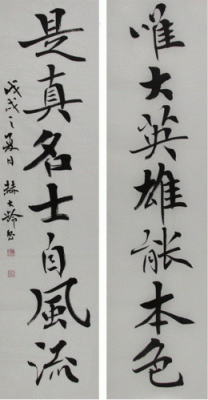 唯大英雄能本色
是真名士自風流
戊戌之夏日 赫大龄书